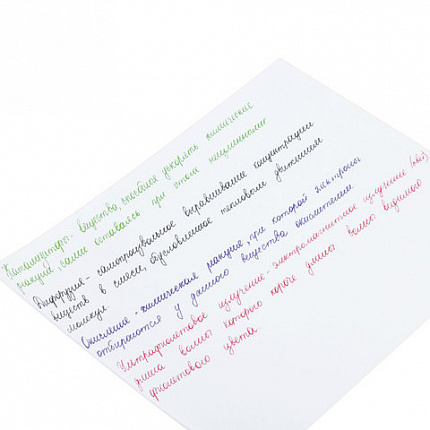 Катализаторы - вещества, способные ускорять химические
реакции, сами оставаясь при этом неизменными
Диффузия - самопроизвольное выравнивание концентрации
веществ в смеси, обусловленное тепловым движением
молекул.
Окисление - химическая реакция, при которой электроны
отбираются у данного вещества окислителем
Ультрафиолетовое излучение - электромагнитное излучение
длина волны которого короче длины волны видимого
фиолетового цвета